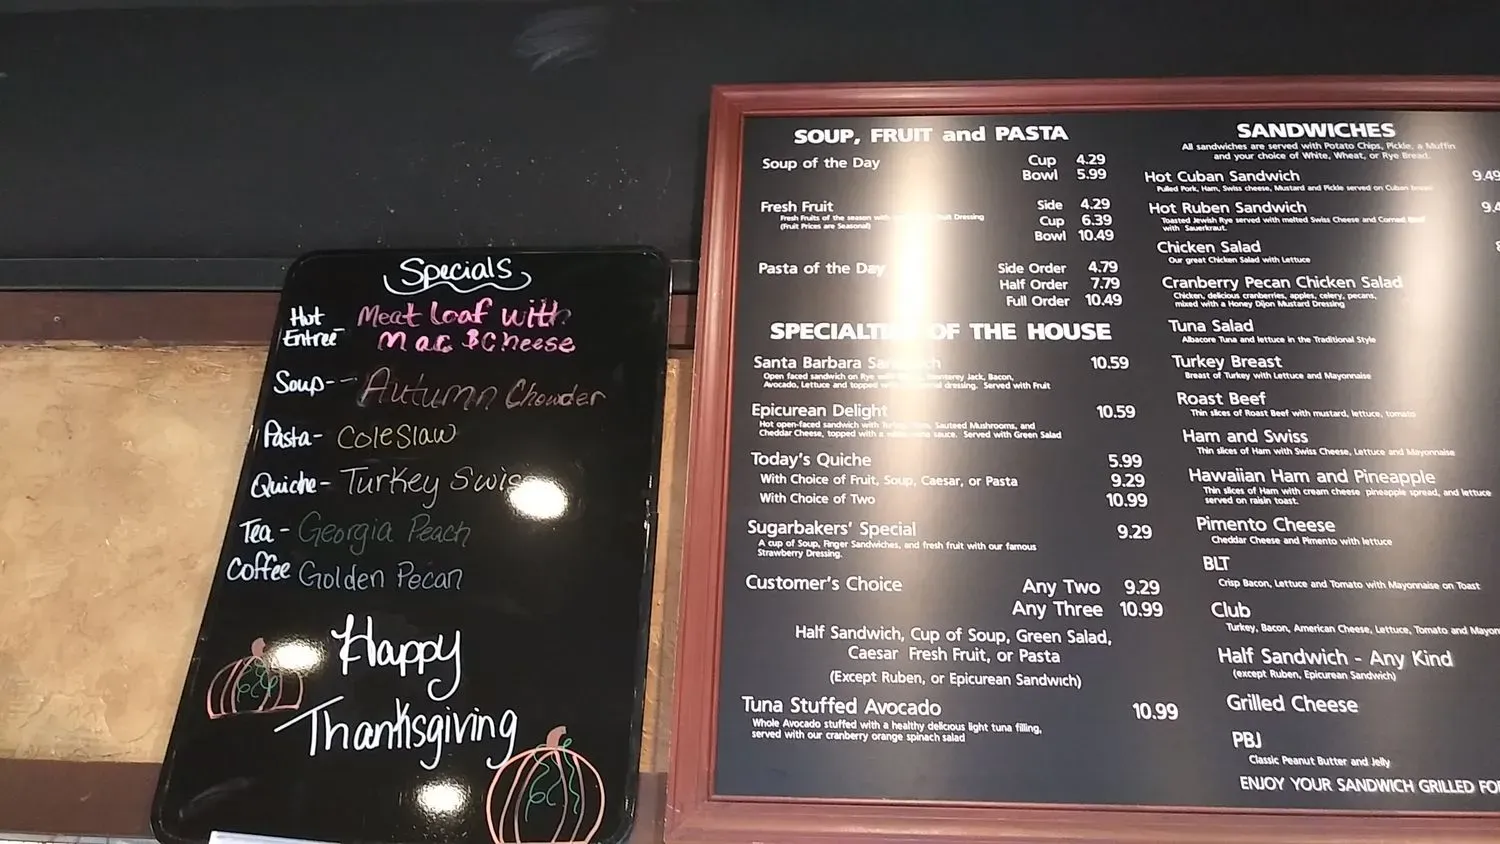 Specials
Hot Entree- Meat Loaf with
Mac & Cheese
Soup-- Autumn Chowder
Pasta- Coleslaw
Quiche- Turkey Swiss
Tea- Georgia Peach
Coffee Golden Pecan
Happy
Thanksgiving
SOUP, FRUIT and PASTA
Soup of the Day Cup 4.29
Bowl 5.99
Fresh Fruit Side 4.29
Fresh Fruits of the season with Fruit Dressing
Cup 6.39
(Fruit Prices are Seasonal)
Bowl 10.49
Pasta of the Day Side Order 4.79
Half Order 7.79
Full Order 10.49
SPECIALTIES OF THE HOUSE
Santa Barbara Sandwich 10.59
Open faced sandwich on Rye with Monterey Jack, Bacon,
Avocado, Lettuce and topped dressing. Served with Fruit
Epicurean Delight 10.59
Hot open-faced sandwich with Sauteed Mushrooms, and
Cheddar Cheese, topped with a sauce. Served with Green Salad
Today's Quiche 5.99
With Choice of Fruit, Soup, Caesar, or Pasta 9.29
With Choice of Two 10.99
Sugarbakers' Special 9.29
A cup of Soup, Finger Sandwiches, and fresh fruit with our famous
Strawberry Dressing.
Customer's Choice Any Two 9.29
Any Three 10.99
Half Sandwich, Cup of Soup, Green Salad,
Caesar Fresh Fruit, or Pasta
(Except Ruben, or Epicurean Sandwich)
Tuna Stuffed Avocado 10.99
Whole Avocado stuffed with a healthy delicious light tuna filling,
served with our cranberry orange spinach salad
SANDWICHES
All sandwiches are served with Potato Chips, Pickle, a Muffin
and your choice of White, Wheat, or Rye Bread.
Hot Cuban Sandwich 9.49
Pulled Pork, Ham, Swiss cheese, Mustard and Pickle served on Cuban bread
Hot Ruben Sandwich 9.4
Toasted Jewish Rye served with melted Swiss Cheese and Corned Beef
with Sauerkraut.
Chicken Salad
Our great Chicken Salad with Lettuce
Cranberry Pecan Chicken Salad
Chicken, delicious cranberries, apples, celery, pecans,
mixed with a Honey Dijon Mustard Dressing
Tuna Salad
Albacore Tuna and lettuce in the Traditional Style
Turkey Breast
Breast of Turkey with Lettuce and Mayonnaise
Roast Beef
Thin slices of Roast Beef with mustard, lettuce, tomato
Ham and Swiss
Thin slices of Ham with Swiss Cheese, Lettuce and Mayonnaise
Hawaiian Ham and Pineapple
Thin slices of Ham with cream cheese pineapple spread, and lettuce
served on raisin toast.
Pimento Cheese
Cheddar Cheese and Pimento with lettuce
BLT
Crisp Bacon, Lettuce and Tomato with Mayonnaise on Toast
Club
Turkey, Bacon, American Cheese, Lettuce, Tomato and Mayon
Half Sandwich - Any Kind
(except Ruben, Epicurean Sandwich)
Grilled Cheese
PBJ
Classic Peanut Butter and Jelly
ENJOY YOUR SANDWICH GRILLED FO